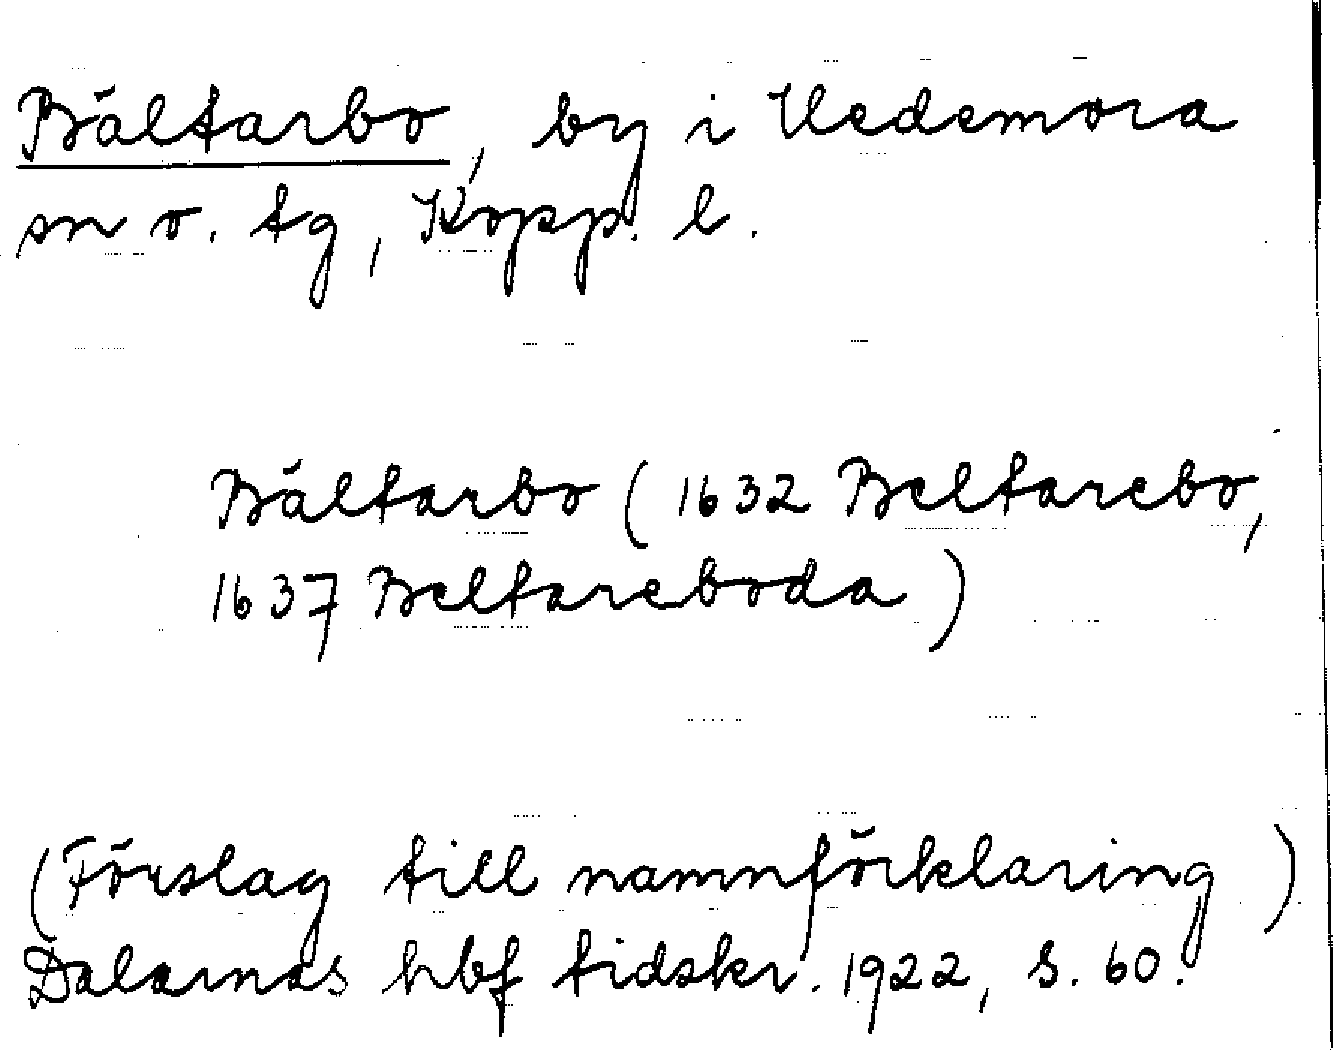 Bältarbo, by i Hedemora
sn o. tg, Kopp. l.
Bältarbo (1632 Beltarebo,
1637 Beltareboda)
(Förslag till namnförklaring)
Dalarnas hbf tidskr. 1922, s. 60.